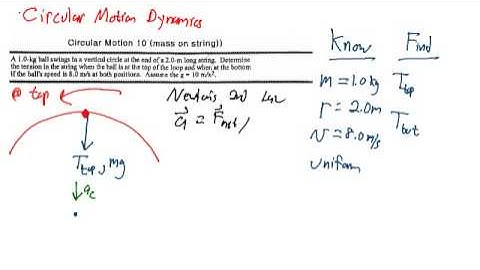 Circular Motion Dynamics
Circular Motion 10 (mass on string))
A 1.0-kg ball swings in a vertical circle at the end of a 2.0-m long string. Determine
the tension in the string when the ball is at the top of the loop and when at the bottom
if the ball's speed is 8.0 m/s at both positions. Assume the g = 10 m/s².
@ top
Newton's 2nd Law
a = Fnet /
Ttop, mg
ac
Know
m = 1.0 kg
r = 2.0m
v = 8.0 m/s
uniform
Find
Ttop
Tbot